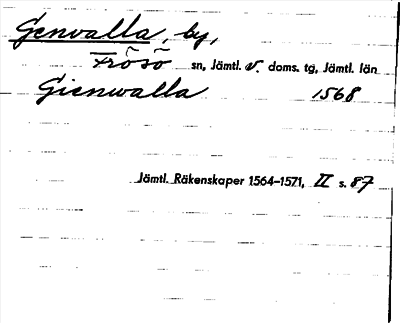 Genvalla, by,
Frösö sn, Jämtl. v. doms. tg, Jämtl. län
Gienwalla 1568
Jämtl. Räkenskaper 1564-1571, II s. 87